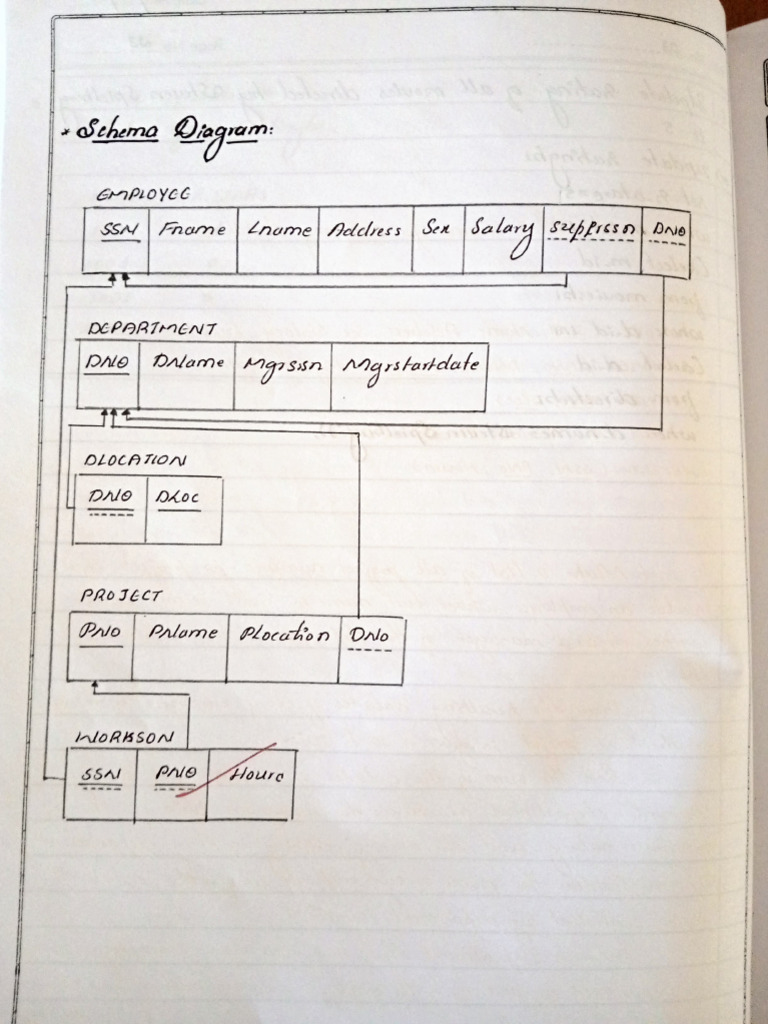 * Schema Diagram:
EMPLOYEE
SSN Fname Lname Address Sex Salary DNO
DEPARTMENT
DNO DName Mgrssn Mgrstartdate
DLOCATION
DNO DLoc
PROJECT
PNO PName PLocation DNO
WORKSON
SSN PNO Hours